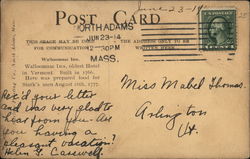 June 23-19
POST CARD
NORTH ADAMS
JUN 23-14
12-30 PM
MASS.
THIS SPACE MAY BE USED
FOR COMMUNICATION
THE ADDRESS ONLY TO BE
Walloomsac Inn, oldest Hotel
in Vermont. Built in 1766.
Here was prepared food for
Stark's men August 16th, 1777.
Rec'd your letter
and was very glad to
hear from you. Are
you having a
pleasant vacation?
Helen T. Casewell.
Miss Mabel Thomas.
Arlington
Vt.